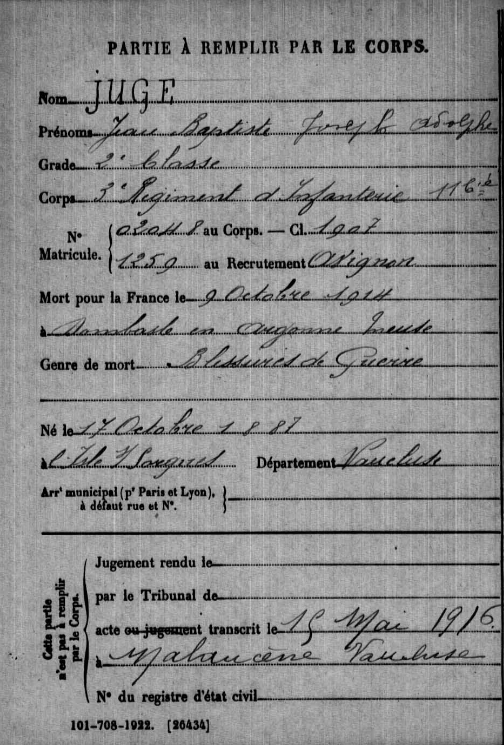 PARTIE À REMPLIR PAR LE CORPS.
Nom JUGE
Prénoms Jean Baptiste Joseph Adolphe
Grade 2e Classe
Corps 3e Régiment d'Infanterie 11 Cie
No Matricule. { 02048 au Corps. — Cl. 1907
1259 au Recrutement Avignon
Mort pour la France le 9 Octobre 1914
à Dombasle en Argonne Meuse
Genre de mort Blessures de Guerre
Né le 17 Octobre 1887
à l'Isle s/Sorgues Département Vaucluse
Arrt municipal (pr Paris et Lyon), à défaut rue et No. }
Cette partie n'est pas à remplir par le Corps.
Jugement rendu le
par le Tribunal de
acte ou jugement transcrit le 15 Mai 1916.
à Malaucène Vaucluse
No du registre d'état civil
101-708-1922. [26434]